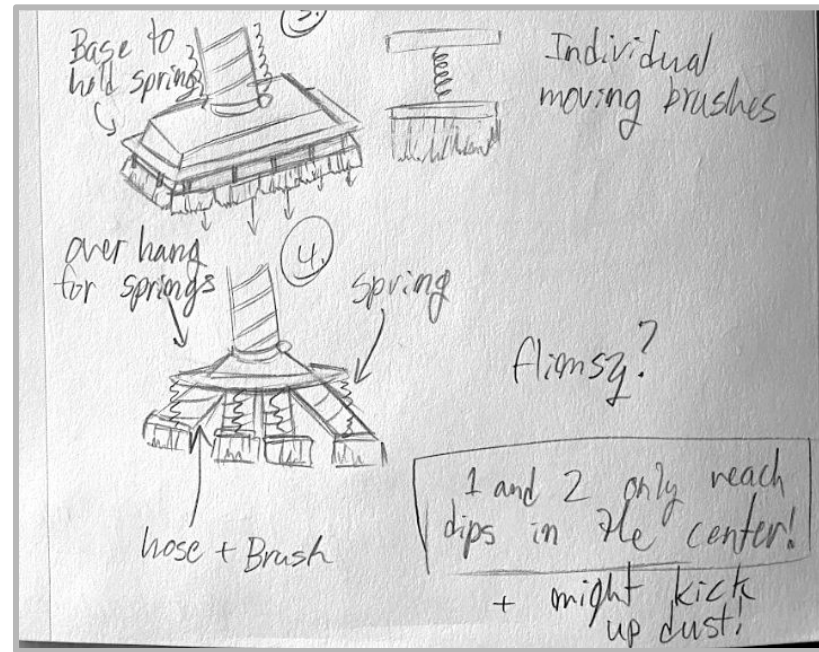 3.
Base to
hold spring
Individual
moving brushes
over hang
for springs
4.
spring
flimsy?
hose + Brush
1 and 2 only reach
dips in the center!
+ might kick
up dust!